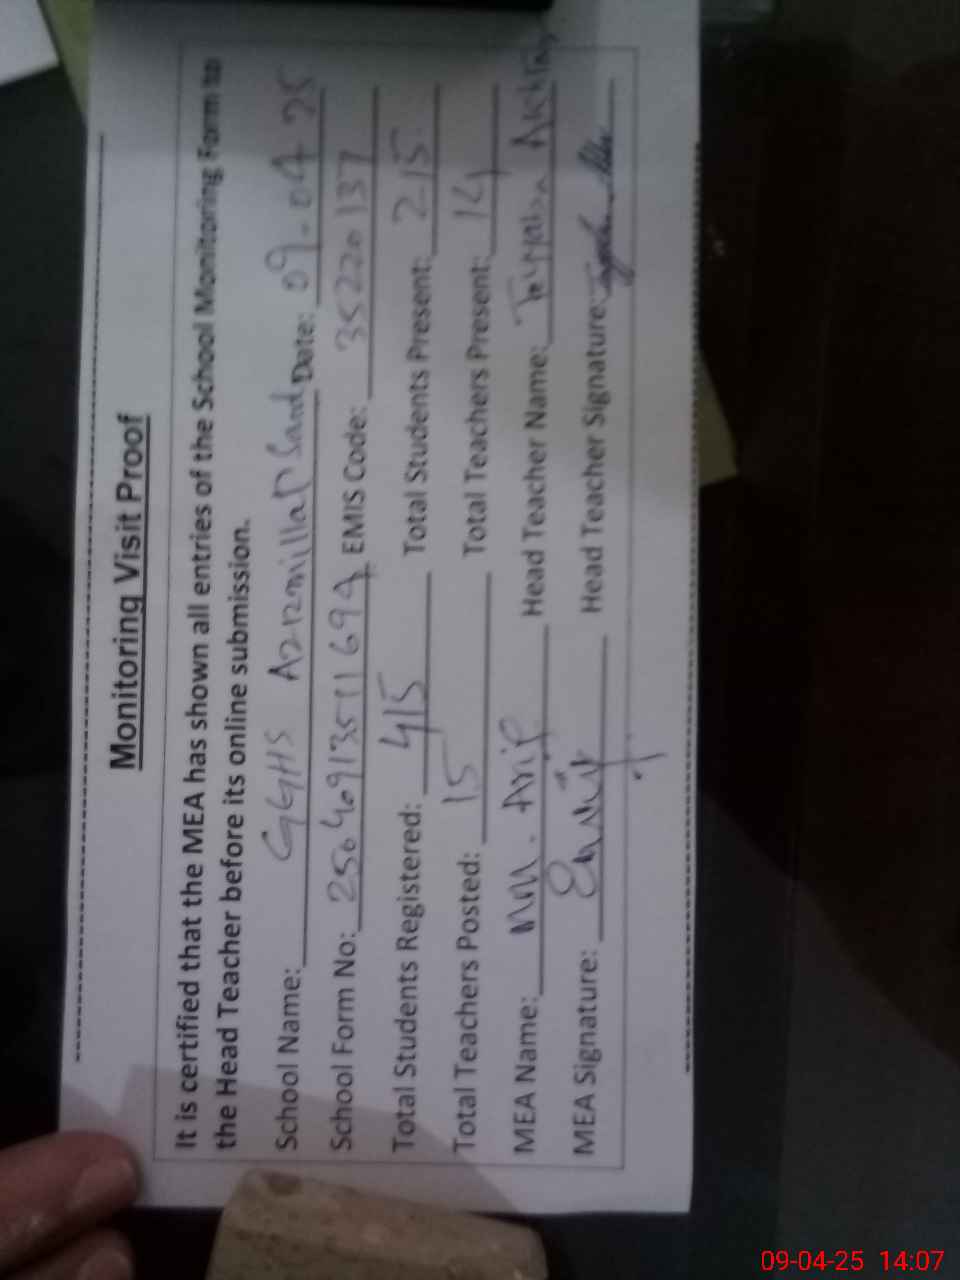 Monitoring Visit Proof
It is certified that the MEA has shown all entries of the School Monitoring Form to
the Head Teacher before its online submission.
School Name: GGHS Date: 09-04-25
School Form No: EMIS Code: 35220137
Total Students Registered: 415 Total Students Present: 215
Total Teachers Posted: 15 Total Teachers Present: 14
MEA Name: M. Arif Head Teacher Name:
MEA Signature: Head Teacher Signature:
09-04-25 14:07